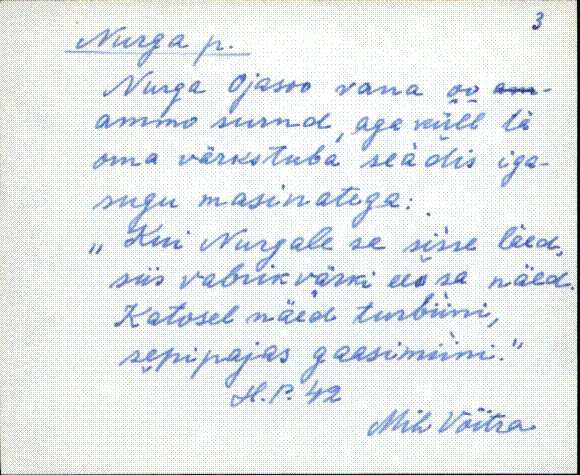 3
Nurga p.
Nurga Ojasoo vana oo am-
ammo surnd, aga küll tä
oma värkstuba seädis iga-
sugu masinatega:
„Kui Nurgale sa sisse läed,
siis vabrikvärki ees sa näed.
Katosel näed turbiini,
sepipajas gaasimiini."
H.P. 42
Mih Võitra